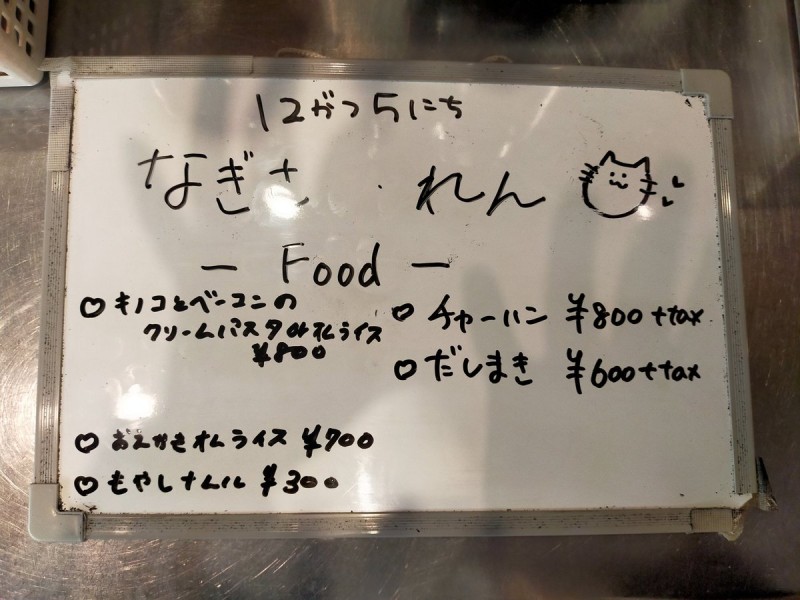 12がつ5にち
なぎさ・れん
— Food —
♡ キノコとベーコンの
クリームパスタorオムライス
¥800
♡ おえかきオムライス ¥700
♡ もやしナムル ¥300
♡ チャーハン ¥800+tax
♡ だしまき ¥600+tax